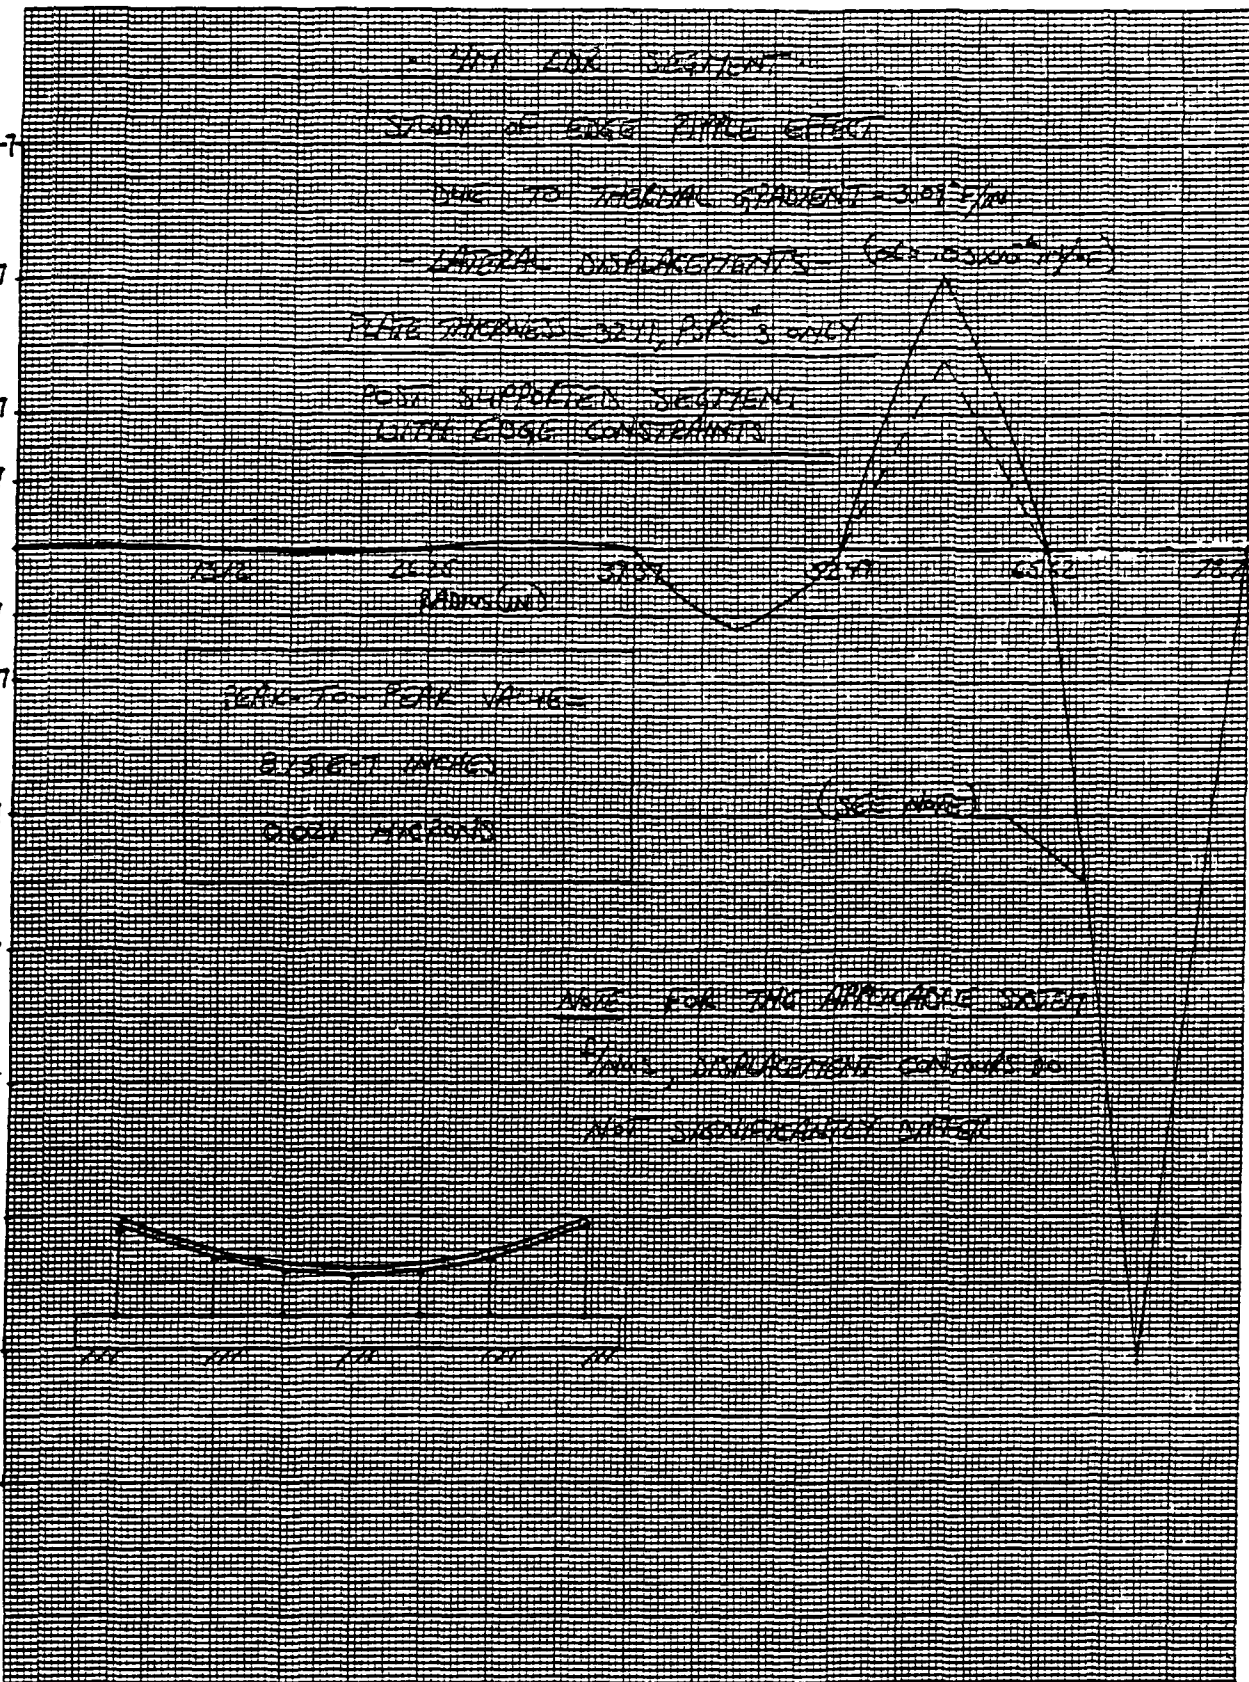 4M LDR SEGMENT
STUDY OF EDGE RIPPLE EFFECT
DUE TO THERMAL GRADIENT = 3.09°F/IN
- LATERAL DISPLACEMENTS -
PLATE THICKNESS ONLY
POST SUPPORTED SEGMENT
WITH EDGE CONSTRAINTS
13.12 26.25 39.37 52.49 65.62 78.7
RADIUS (IN)
PEAK-TO-PEAK VALUE =
8.15E-7 INCHES
0.021 MICRONS
(SEE NOTE)
NOTE FOR THE APPLICABLE SYSTEM
DISPLACEMENT CONTOURS DO
NOT SIGNIFICANTLY DIFFER